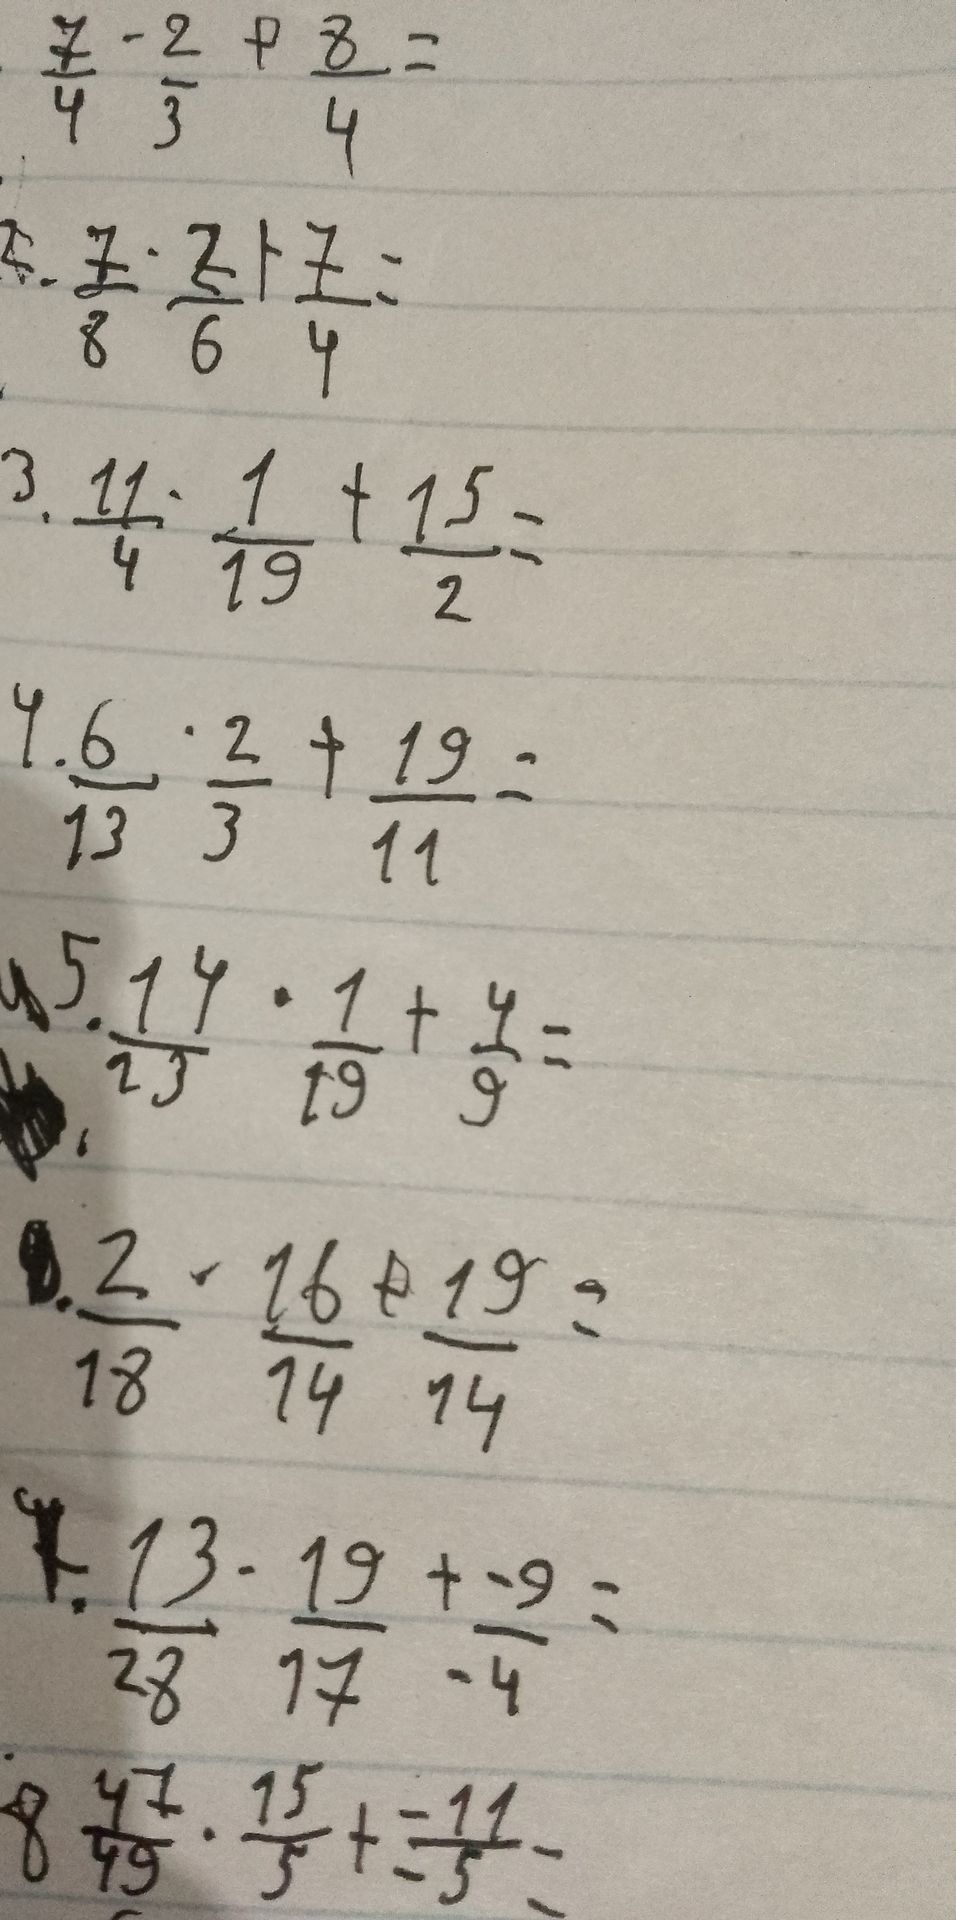 7/4 - 2/3 + 8/4 =
2. 7/8 · 2/6 + 7/4 =
3. 11/4 · 1/19 + 15/2 =
4. 6/13 · 2/3 + 19/11 =
5. 14/23 · 1/19 + 4/9 =
2/18 - 16/14 + 19/14 =
7. 13/28 - 19/17 + -9/-4 =
8 47/49 · 15/5 + -11/-5 =